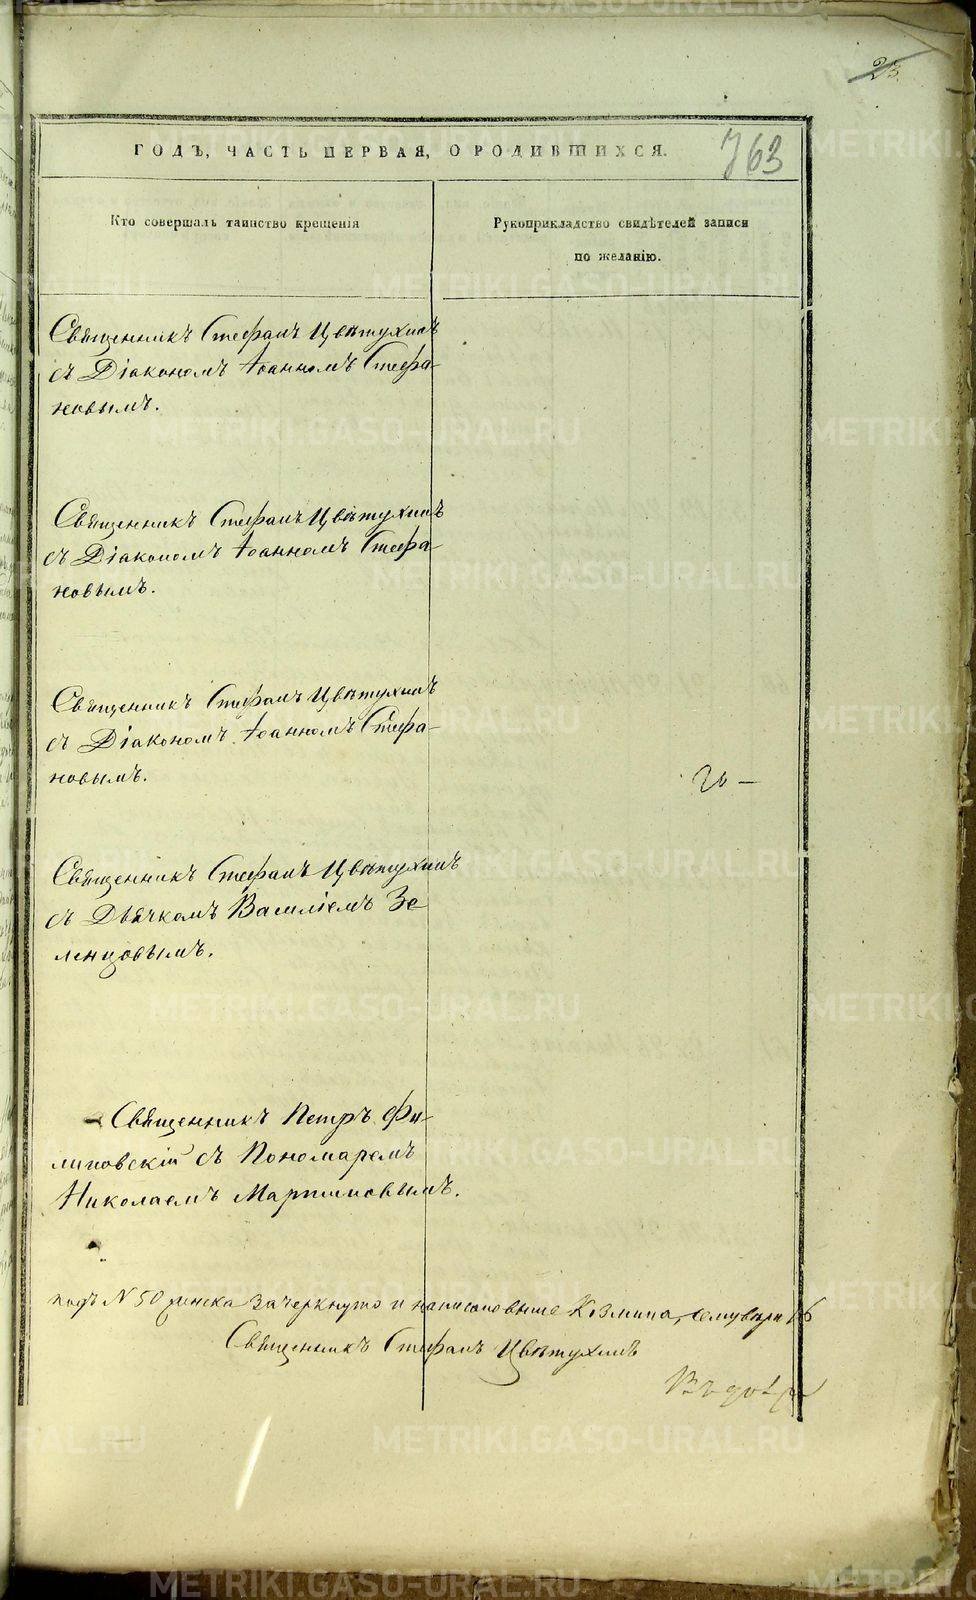 23
763
ГОДЪ, ЧАСТЬ ПЕРВАЯ, О РОДИВШИХСЯ.
Кто совершалъ таинство крещенія
Рукоприкладство свидѣтелей записи
по желанію.
Священникъ Стефанъ Цвѣтухинъ
съ Діакономъ Іоанномъ Стефа-
новымъ.
Священникъ Стефанъ Цвѣтухинъ
съ Діакономъ Іоанномъ Стефа-
новымъ.
Священникъ Стефанъ Цвѣтухинъ
съ Діакономъ Іоанномъ Стефа-
новымъ.
Священникъ Стефанъ Цвѣтухинъ
съ Дьячкомъ Василіемъ Зе
ленцовымъ.
Священникъ Петръ Фи-
липовскій съ Пономаремъ
Николаемъ Мартиновымъ.
подъ N 50 зачеркнуто и написано выше Козмина, сему вѣри
Священникъ Стефанъ Цвѣтухинъ
METRIKI.GASO-URAL.RU